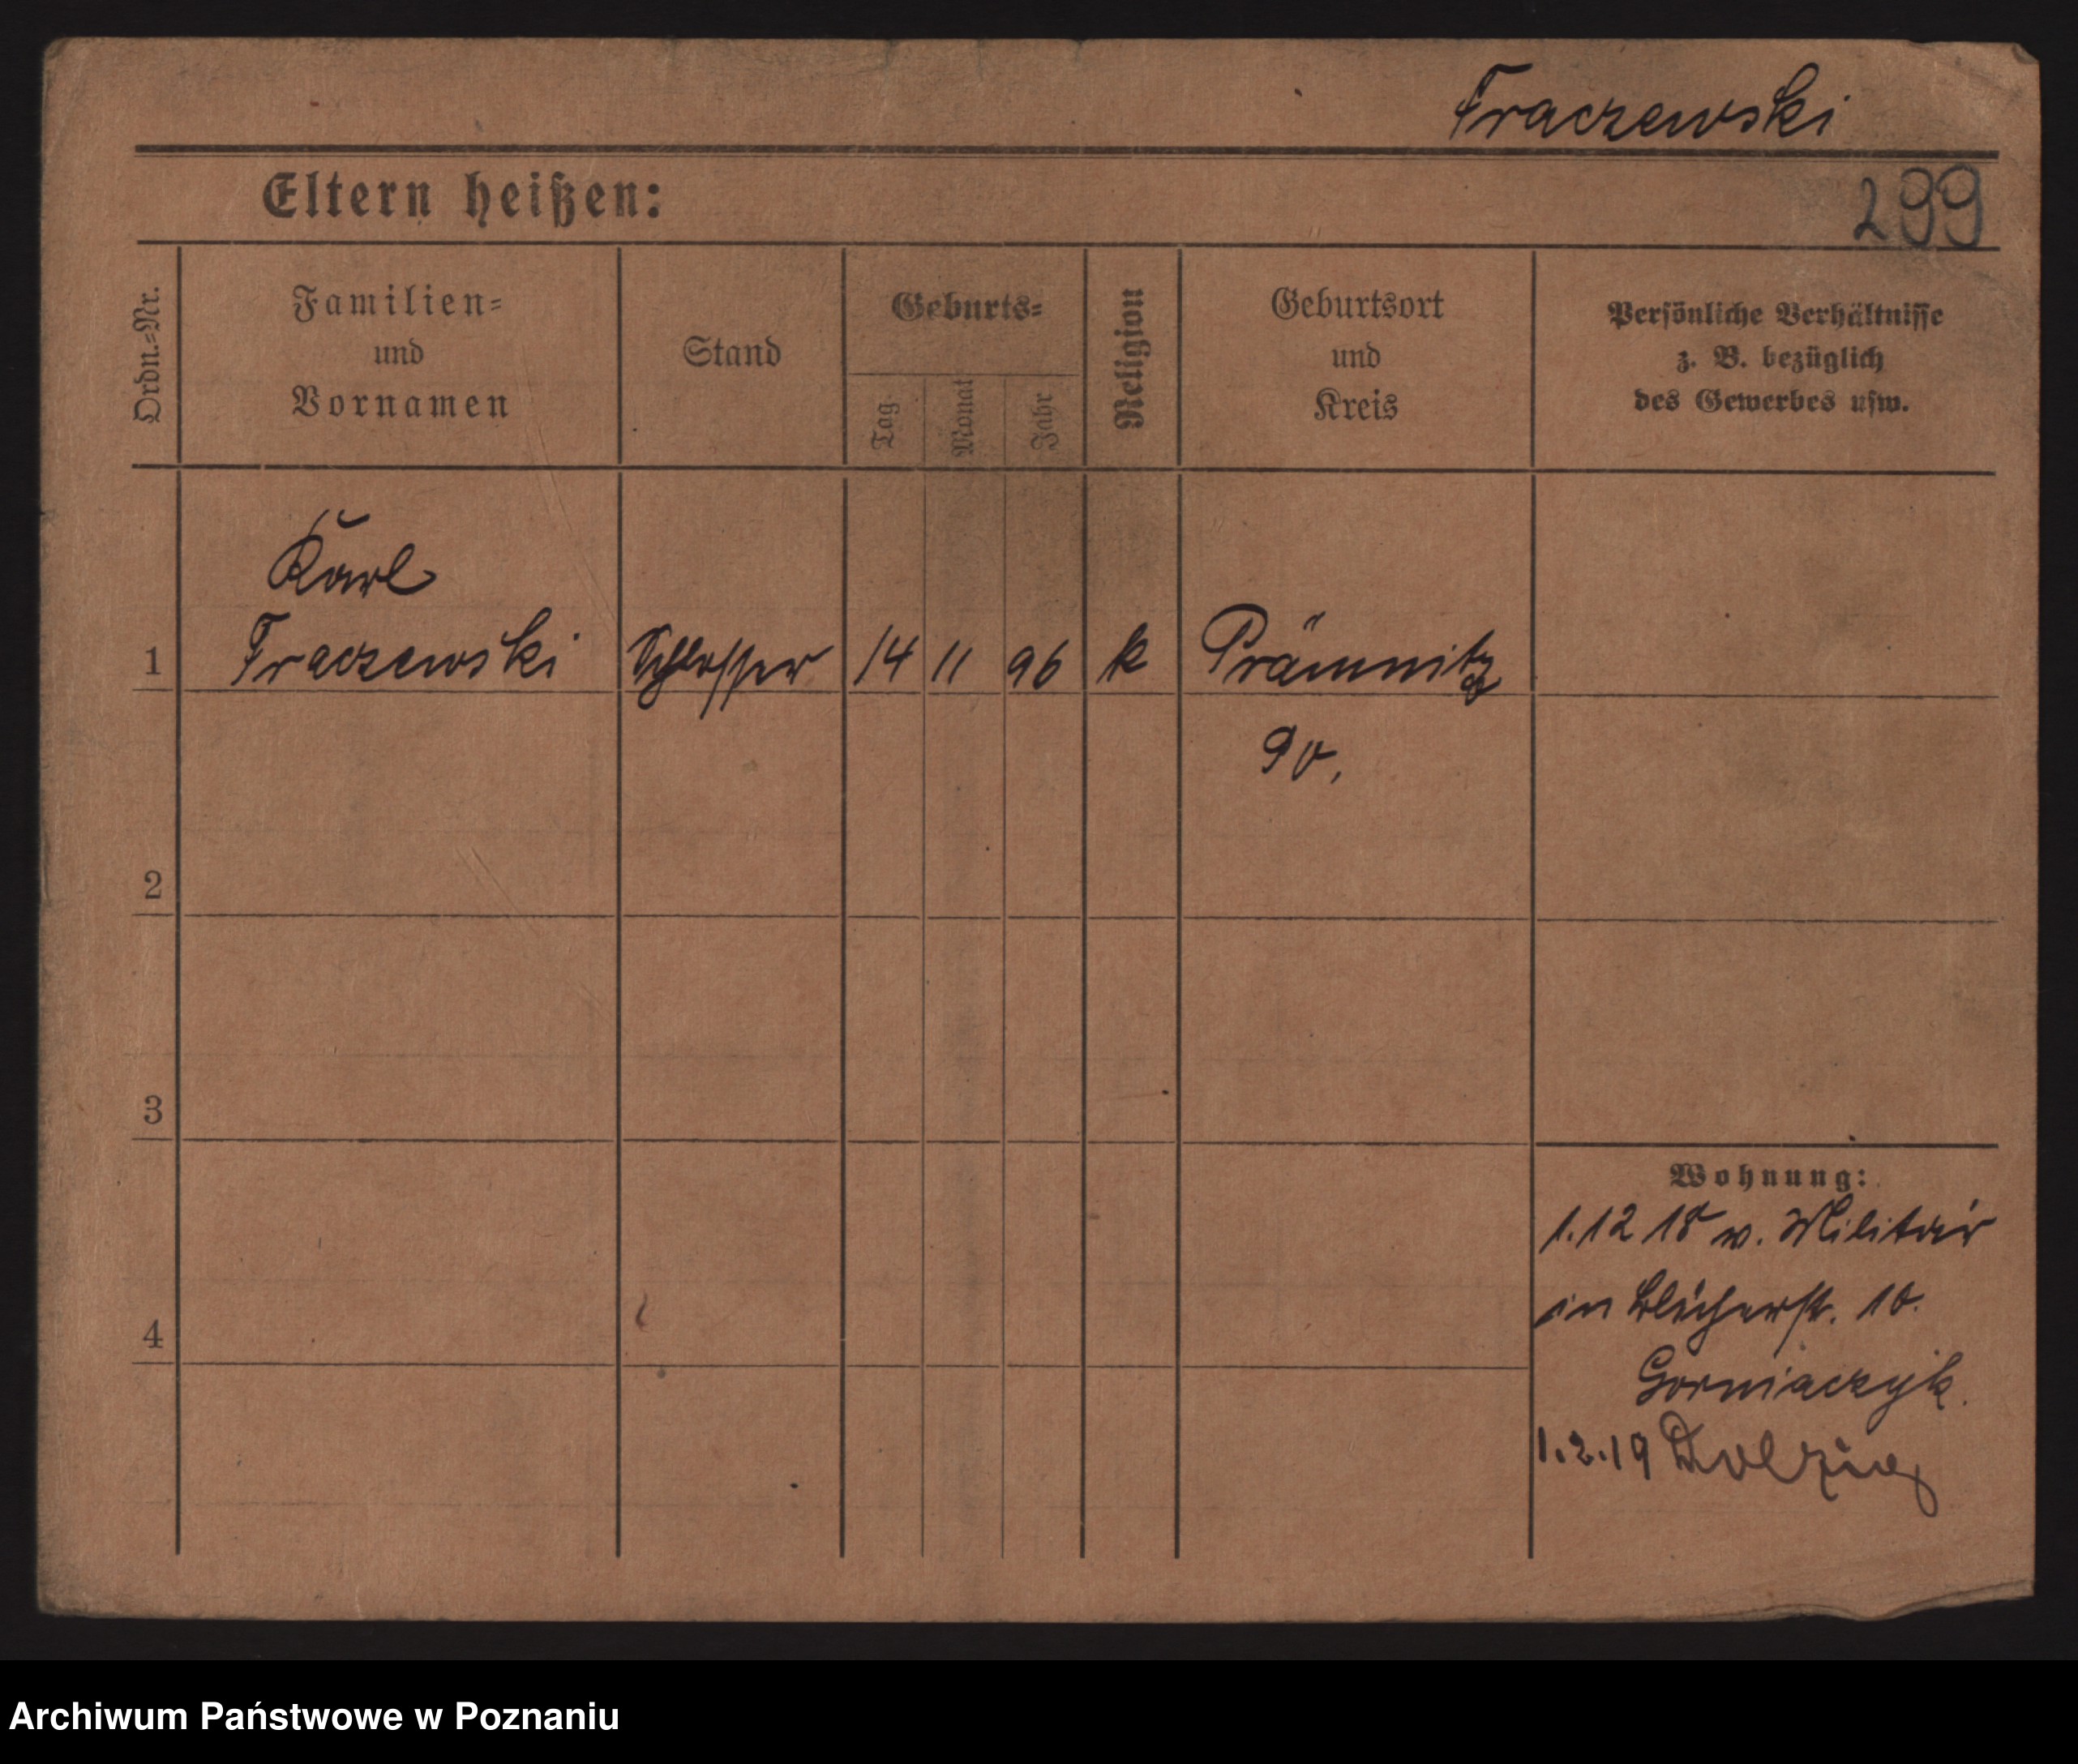 Fraczewski
Eltern heißen:
299
Ordn.-Nr.
Familien-
und
Vornamen
Stand
Geburts-
Tag
Monat
Jahr
Religion
Geburtsort
und
Kreis
Persönliche Verhältnisse
z. B. bezüglich
des Gewerbes usw.
Karl
1 Fraczewski Schlosser 14 11 96 k Prämnitz
2
3
4
Wohnung:
1.12 18 v. Militär
in Blücherstr. 10.
Gorniaczyk.
1.2.19 Dolzig
Archiwum Państwowe w Poznaniu